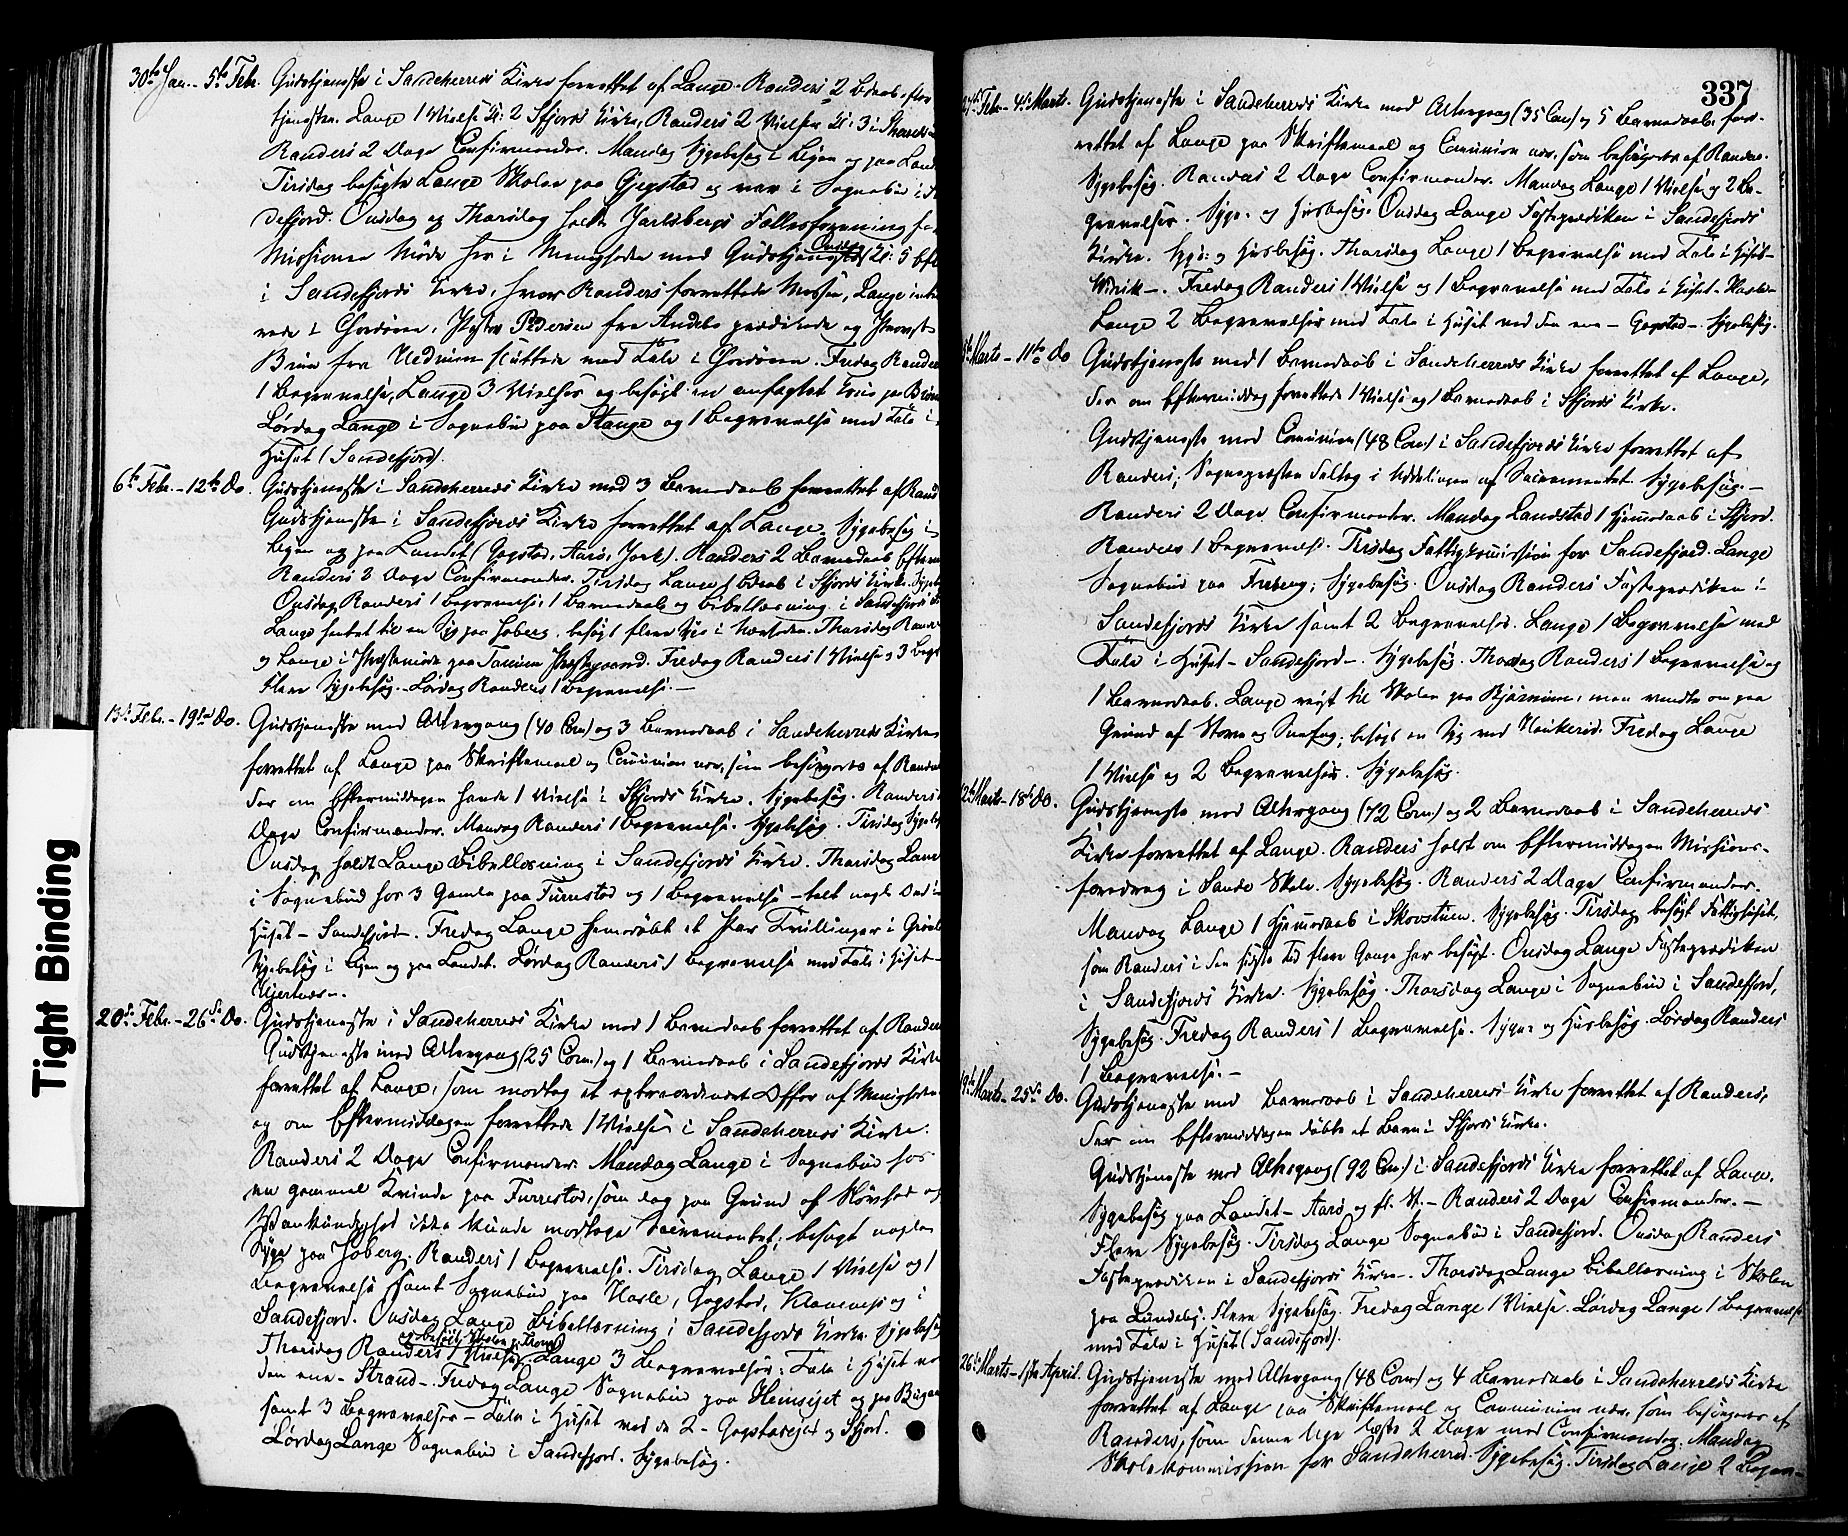 30te Jan. - 5te Febr. Gudstjeneste i Sandeherreds Kirke forrettet af Lange. Randers 2 Bdaab efter
tjenesten. Lange 1 Vielse Kl: 2 Sfjords Kirke, Randers 2 Vielser Kl: 3 i
Randers 2 Dage Confirmander. Mandag Sygebesøg i Byen og paa Land
Tirsdag besøgte Lange Skolen paa Gjegstad og var i Sognebud i
defjord. Onsdag og Thorsdag holdt Jarlsbergs Fællesforening for
Missionen Møde her i Menigheden med Gudstjeneste Onsdag Kl: 5 Eft
i Sandefjords Kirke, hvor Randers forrettede Messen, Lange
rede i Chordøren, Pastor Pedersen fra Andebo prædikede og Provst
Bruun fra Hedrum sluttede med Tale i Chordøren. Fredag Randers
1 Begravelse, Lange 3 Vielser og besøgt en anfægtet Kone paa
Lørdag Lange i Sognebud paa Stange og 1 Begravelse med Tale i
Huset (Sandefjord).
6te Febr. - 12te Do. Gudstjeneste i Sandeherreds Kirke med 3 Barnedaab forrettet af Rand
Gudstjeneste i Sandefjords Kirke forrettet af Lange. Sygebesøg i
Byen og paa Landet (Gogstad, Aarø, ). Randers 2 Barnedaab Efterm
Randers 2 Dage Confirmander. Tirsdag Lange 1 Bdaab i Sfjords Kirke. Sygeb
Onsdag Randers 1 Begravelse, 1 Barnedaab og Bibellæsning i Sandefjords
Lange hentet til en Syg paa Joberg, besøgt flere Syge i Nærheden. Thorsdag Rand
og Lange i Præstemøde paa Præstegaard. Fredag Randers 1 Vielse og 3 Begr
flere Sygebesøg. Lørdag Randers 1 Begravelse. -
13de Febr. - 19de Do. Gudstjeneste med Altergang (40 Com) og 3 Barnedaab i Sandeherreds Kirke
forrettet af Lange paa Skriftemaal og Communion nær, som besørgedes af Rande
der om Eftermiddagen havde 1 Vielse i Sfjords Kirke. Sygebesøg. Randers
Dage Confirmander. Mandag Randers 1 Begravelse. Sygebesøg. Tirsdag Sygeb
Onsdag holdt Lange Bibellæsning i Sandefjords Kirke. Thorsdag Lange
i Sognebud hos 3 Gamle paa Furrestad og 1 Begravelse - talt nogle Ord i
Huset - Sandefjord -. Fredag Lange hjemdøbt et Par Tvillinger i
Sygebesøg i Byen og paa Landet. Lørdag Randers 1 Begravelse med Tale i Huset -
Hjertnæs -.
20de Febr. - 26de Do. Gudstjeneste i Sandeherreds Kirke med 1 Barnedaab forrettet af Rander
Gudstjeneste med Altergang (25 Com.) og 1 Barnedaab i Sandefjords Kirke
forrettet af Lange, som modtog et extraordinært Offer af Menigheden
og om Eftermiddagen forrettede 1 Vielse i Sandeherreds Kirke.
Randers 2 Dage Confirmander. Mandag Lange i Sognebud hos
en gammel Kvinde paa Furrestad, som dog paa Grund af Sløvhed og
Vankundighed ikke kunde modtage Sacramentet; besøgt nogle
Syge paa Joberg. Randers 1 Begravelse. Tirsdag Lange 1 Vielse og 1
Begravelse samt Sognebud paa Hasle, Gogstad, Klavenes og i
Sandefjord. Onsdag Lange Bibellæsning i Sandefjords Kirke. Sygebesøg
og besøgt Skolen
Thorsdag Randers 1 Vielse. Lange 3 Begravelser; Tale i Huset ved
den ene - Strand -. Fredag Lange Sognebud paa Heimsejet og paa
samt 3 Begravelser - Tale i Huset ved de 2 - Gogstadejet og Sfjord.
Lørdag Lange Sognebud i Sandefjord. Sygebesøg.
337
27de Febr. - 4de Marts. Gudstjeneste i Sandeherreds Kirke med Altergang (35 Com) og 5 Barnedaab, for-
rettet af Lange paa Skriftemaal og Communion nær, som besørgedes af Randers.
Sygebesøg. Randers 2 Dage Confirmander. Mandag Lange 1 Vielse og 2 Be-
gravelser. Syge- og Husbesøg. Onsdag Lange Fasteprædiken i Sandefjords
Kirke. Syge- og Husbesøg. Thorsdag Lange 1 Begravelse med Tale i Huset -
Virik -. Fredag Randers 1 Vielse og 1 Begravelse med Tale i Huset - Hasle -
Lange 2 Begravelser med Tale i Huset ved den ene - Gogstad -. Sygebesøg.
5te Marts - 11te Do Gudstjeneste med 1 Barnedaab i Sandeherreds Kirke forrettet af Lange,
der om Eftermiddag forrettede 1 Vielse og 1 Barnedaab i Sfjords Kirke.
Gudstjeneste med Communion (48 Com) i Sandefjords Kirke forrettet af
Randers; Sognepræsten deltog i Uddelingen af Sacramentet. Sygebesøg. -
Randers 2 Dage Confirmander. Mandag Landstad 1 Hjemmedaab i Sfjord.
Randers 1 Begravelse. Tirsdag Fattigkommission for Sandefjord. Lange
Sognebud paa Freberg; Sygebesøg. Onsdag Randers Fasteprædiken i
Sandefjords Kirke samt 2 Begravelser. Lange 1 Begravelse med
Tale i Huset - Sandefjord -. Sygebesøg. Thorsdag Randers 1 Begravelse og
1 Barnedaab. Lange rejst til Skolen paa Bjørnum, men vendte om paa
Grund af Storm og Snefog; besøgt en Syg ved Haukerød. Fredag Lange
1 Vielse og 2 Begravelser. Sygebesøg.
12te Marts - 18de Do. Gudstjeneste med Altergang (72 Com) og 2 Barnedaab i Sandeherreds
Kirke forrettet af Lange. Randers holdt om Eftermiddagen Missions-
foredrag i Sande Skole. Sygebesøg. Randers 2 Dage Confirmander.
Mandag Lange 1 Hjemmedaab i Skovstuen. Sygebesøg. Tirsdag besøgt Fattighuset,
som Randers i den sidste Tid flere Gange har besøgt. Onsdag Lange Fasteprædiken
i Sandefjords Kirke. Sygebesøg. Thorsdag Lange i Sognebud i Sandefjord,
Sygebesøg. Fredag Randers 1 Begravelse. Syge- og Husbesøg. Lørdag Randers
1 Begravelse. -
19de Marts - 25de Do. Gudstjeneste med Barnedaab i Sandeherreds Kirke forrettet af Randers,
der om Eftermiddagen døbte et Barn i Sfjords Kirke.
Gudstjeneste med Altergang (92 Com) i Sandefjords Kirke forrettet af Lange.
Sygebesøg paa Landet - Aarø og fl. St. - Randers 2 Dage Confirmander. -
Flere Sygebesøg. Tirsdag Lange Sognebud i Sandefjord. Onsdag Randers
Fasteprædiken i Sandefjords Kirke. Thorsdag Lange Bibellæsning i Skolen
paa Lundeby. Flere Sygebesøg. Fredag Lange 1 Vielse. Lørdag Lange 1 Begravelse
med Tale i Huset (Sandefjord).
26de Marts - 1ste April. Gudstjeneste med Altergang (48 Com) og 4 Barnedaab i Sandeherreds Kirke
forrettet af Lange paa Skriftemaal og Communion nær, som besørgedes af
Randers, som denne Uge læste 2 Dage med Confirmander. Mandag
Skolekommission for Sandeherred. Sygebesøg. Tirsdag Lange 2 Begra-
Tight Binding